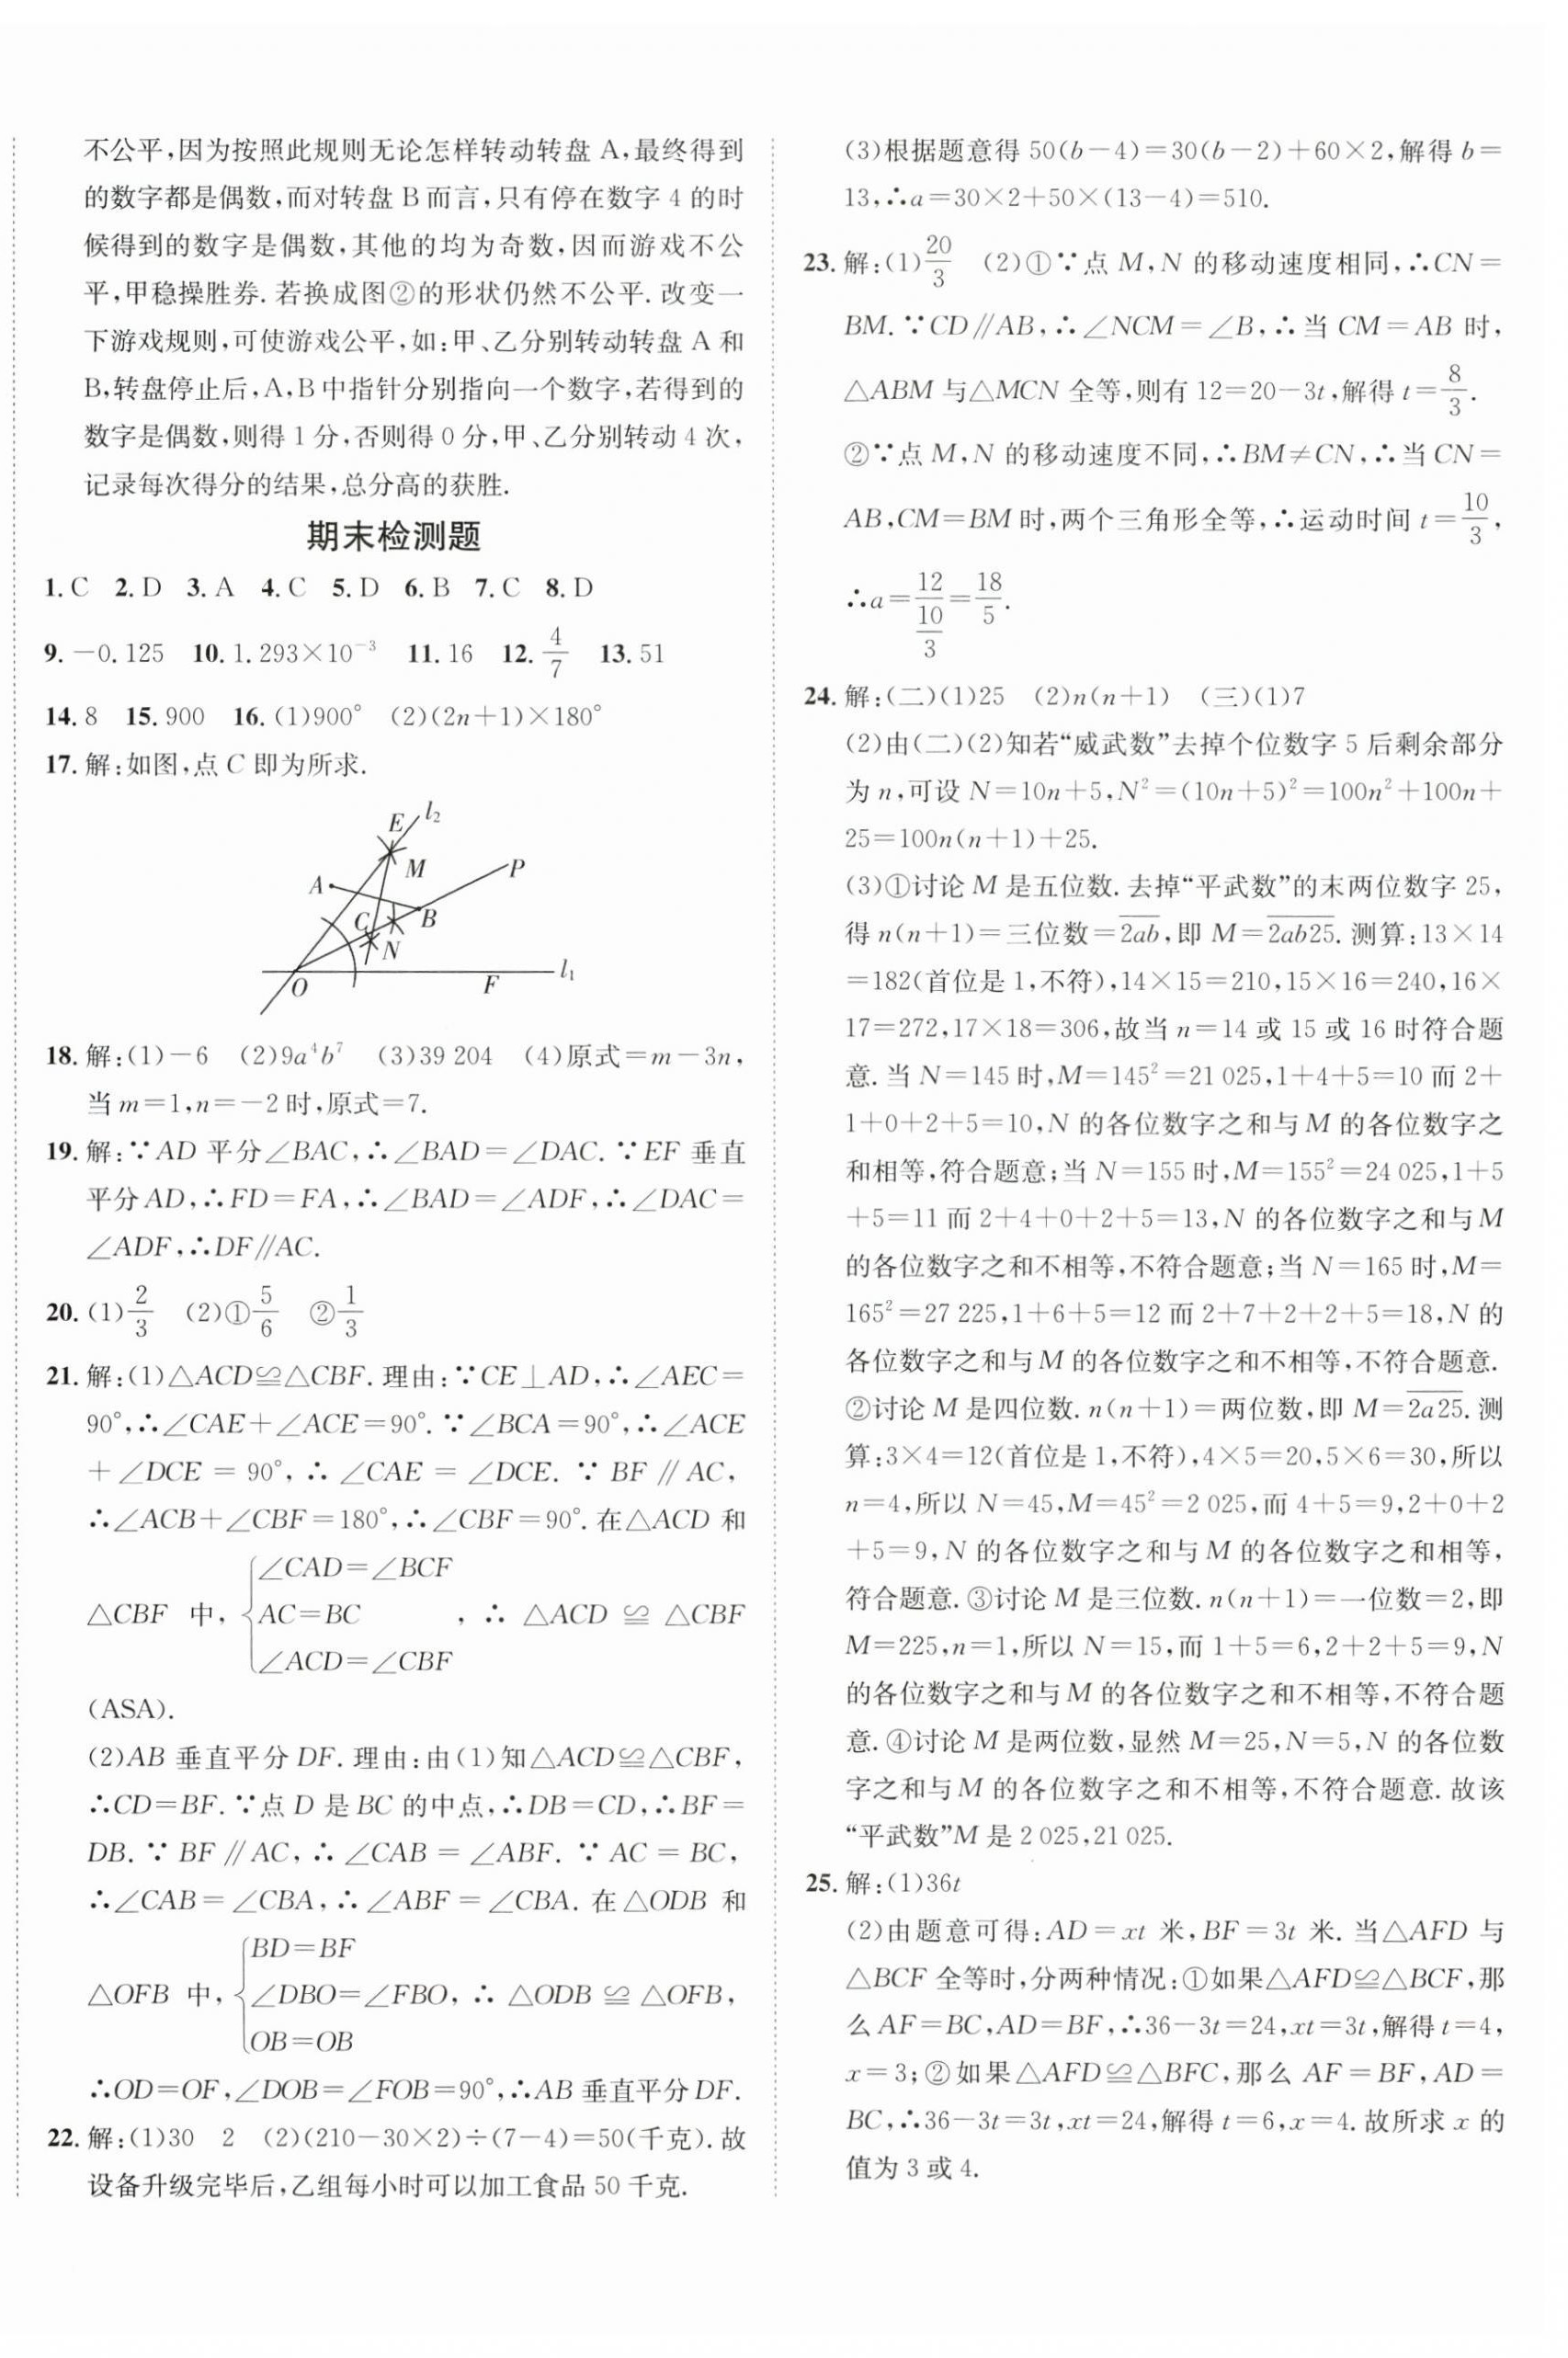 不公平,因为按照此规则无论怎样转动转盘 A,最终得到
的数字都是偶数,而对转盘 B 而言,只有停在数字 4 的时
候得到的数字是偶数,其他的均为奇数,因而游戏不公
平,甲稳操胜券. 若换成图②的形状仍然不公平. 改变一
下游戏规则,可使游戏公平,如:甲、乙分别转动转盘 A 和
B,转盘停止后,A,B 中指针分别指向一个数字,若得到的
数字是偶数,则得 1 分,否则得 0 分,甲、乙分别转动 4 次,
记录每次得分的结果,总分高的获胜.
期末检测题
1. C 2. D 3. A 4. C 5. D 6. B 7. C 8. D
9. －0. 125 10. 1. 293×10⁻³ 11. 16 12. 4/7 13. 51
14. 8 15. 900 16. (1)900° (2)(2n＋1)×180°
17. 解:如图,点 C 即为所求.
E l₂
M
P
A
C B
N
O F l₁
18. 解:(1)－6 (2)9a⁴b⁷ (3)39 204 (4)原式＝m－3n,
当 m＝1,n＝－2 时,原式＝7.
19. 解:∵AD 平分∠BAC,∴∠BAD＝∠DAC. ∵EF 垂直
平分 AD,∴FD＝FA,∴∠BAD＝∠ADF,∴∠DAC＝
∠ADF,∴DF∥AC.
20. (1)2/3 (2)①5/6 ②1/3
21. 解:(1)△ACD≌△CBF. 理由:∵CE⊥AD,∴∠AEC＝
90°,∴∠CAE＋∠ACE＝90°. ∵∠BCA＝90°,∴∠ACE
＋∠DCE＝90°,∴∠CAE＝∠DCE. ∵BF∥AC,
∴∠ACB＋∠CBF＝180°,∴∠CBF＝90°. 在△ACD 和
∠CAD＝∠BCF
△CBF 中,{AC＝BC ,∴△ACD≌△CBF
∠ACD＝∠CBF
(ASA).
(2)AB 垂直平分 DF. 理由:由(1)知△ACD≌△CBF,
∴CD＝BF. ∵点 D 是 BC 的中点,∴DB＝CD,∴BF＝
DB. ∵BF∥AC,∴∠CAB＝∠ABF. ∵AC＝BC,
∴∠CAB＝∠CBA,∴∠ABF＝∠CBA. 在△ODB 和
BD＝BF
△OFB 中,{∠DBO＝∠FBO,∴△ODB≌△OFB,
OB＝OB
∴OD＝OF,∠DOB＝∠FOB＝90°,∴AB 垂直平分 DF.
22. 解:(1)30 2 (2)(210－30×2)÷(7－4)＝50(千克). 故
设备升级完毕后,乙组每小时可以加工食品 50 千克.
(3)根据题意得 50(b－4)＝30(b－2)＋60×2,解得 b＝
13,∴a＝30×2＋50×(13－4)＝510.
23. 解:(1)20/3 (2)①∵点 M,N 的移动速度相同,∴CN＝
BM. ∵CD∥AB,∴∠NCM＝∠B,∴当 CM＝AB 时,
△ABM 与△MCN 全等,则有 12＝20－3t,解得 t＝8/3.
②∵点 M,N 的移动速度不同,∴BM≠CN,∴当 CN＝
AB,CM＝BM 时,两个三角形全等,∴运动时间 t＝10/3,
∴a＝12/(10/3)＝18/5.
24. 解:(二)(1)25 (2)n(n＋1) (三)(1)7
(2)由(二)(2)知若“威武数”去掉个位数字 5 后剩余部分
为 n,可设 N＝10n＋5,N²＝(10n＋5)²＝100n²＋100n＋
25＝100n(n＋1)＋25.
(3)①讨论 M 是五位数. 去掉“平武数”的末两位数字 25,
得 n(n＋1)＝三位数＝2̅a̅b̅,即 M＝2̅a̅b̅2̅5̅. 测算:13×14
＝182(首位是 1,不符),14×15＝210,15×16＝240,16×
17＝272,17×18＝306,故当 n＝14 或 15 或 16 时符合题
意. 当 N＝145 时,M＝145²＝21 025,1＋4＋5＝10 而 2＋
1＋0＋2＋5＝10,N 的各位数字之和与 M 的各位数字之
和相等,符合题意;当 N＝155 时,M＝155²＝24 025,1＋5
＋5＝11 而 2＋4＋0＋2＋5＝13,N 的各位数字之和与 M
的各位数字之和不相等,不符合题意;当 N＝165 时,M＝
165²＝27 225,1＋6＋5＝12 而 2＋7＋2＋2＋5＝18,N 的
各位数字之和与 M 的各位数字之和不相等,不符合题意.
②讨论 M 是四位数. n(n＋1)＝两位数,即 M＝2̅a̅2̅5̅. 测
算:3×4＝12(首位是 1,不符),4×5＝20,5×6＝30,所以
n＝4,所以 N＝45,M＝45²＝2 025,而 4＋5＝9,2＋0＋2
＋5＝9,N 的各位数字之和与 M 的各位数字之和相等,
符合题意. ③讨论 M 是三位数. n(n＋1)＝一位数＝2,即
M＝225,n＝1,所以 N＝15,而 1＋5＝6,2＋2＋5＝9,N
的各位数字之和与 M 的各位数字之和不相等,不符合题
意. ④讨论 M 是两位数,显然 M＝25,N＝5,N 的各位数
字之和与 M 的各位数字之和不相等,不符合题意. 故该
“平武数”M 是 2 025,21 025.
25. 解:(1)36t
(2)由题意可得:AD＝xt 米,BF＝3t 米. 当△AFD 与
△BCF 全等时,分两种情况:①如果△AFD≌△BCF,那
么 AF＝BC,AD＝BF,∴36－3t＝24,xt＝3t,解得 t＝4,
x＝3;②如果△AFD≌△BFC,那么 AF＝BF,AD＝
BC,∴36－3t＝3t,xt＝24,解得 t＝6,x＝4. 故所求 x 的
值为 3 或 4.